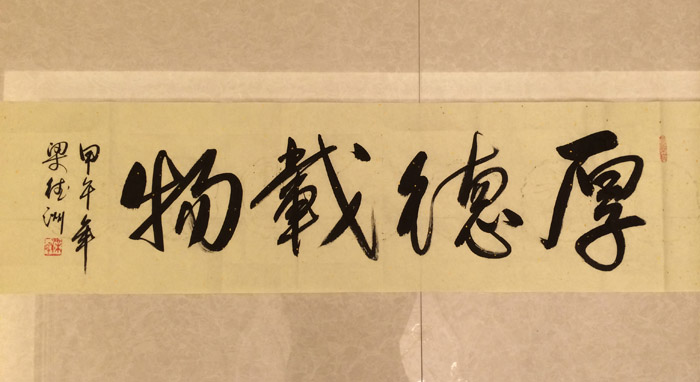 厚德载物
甲午年
梁桂洲